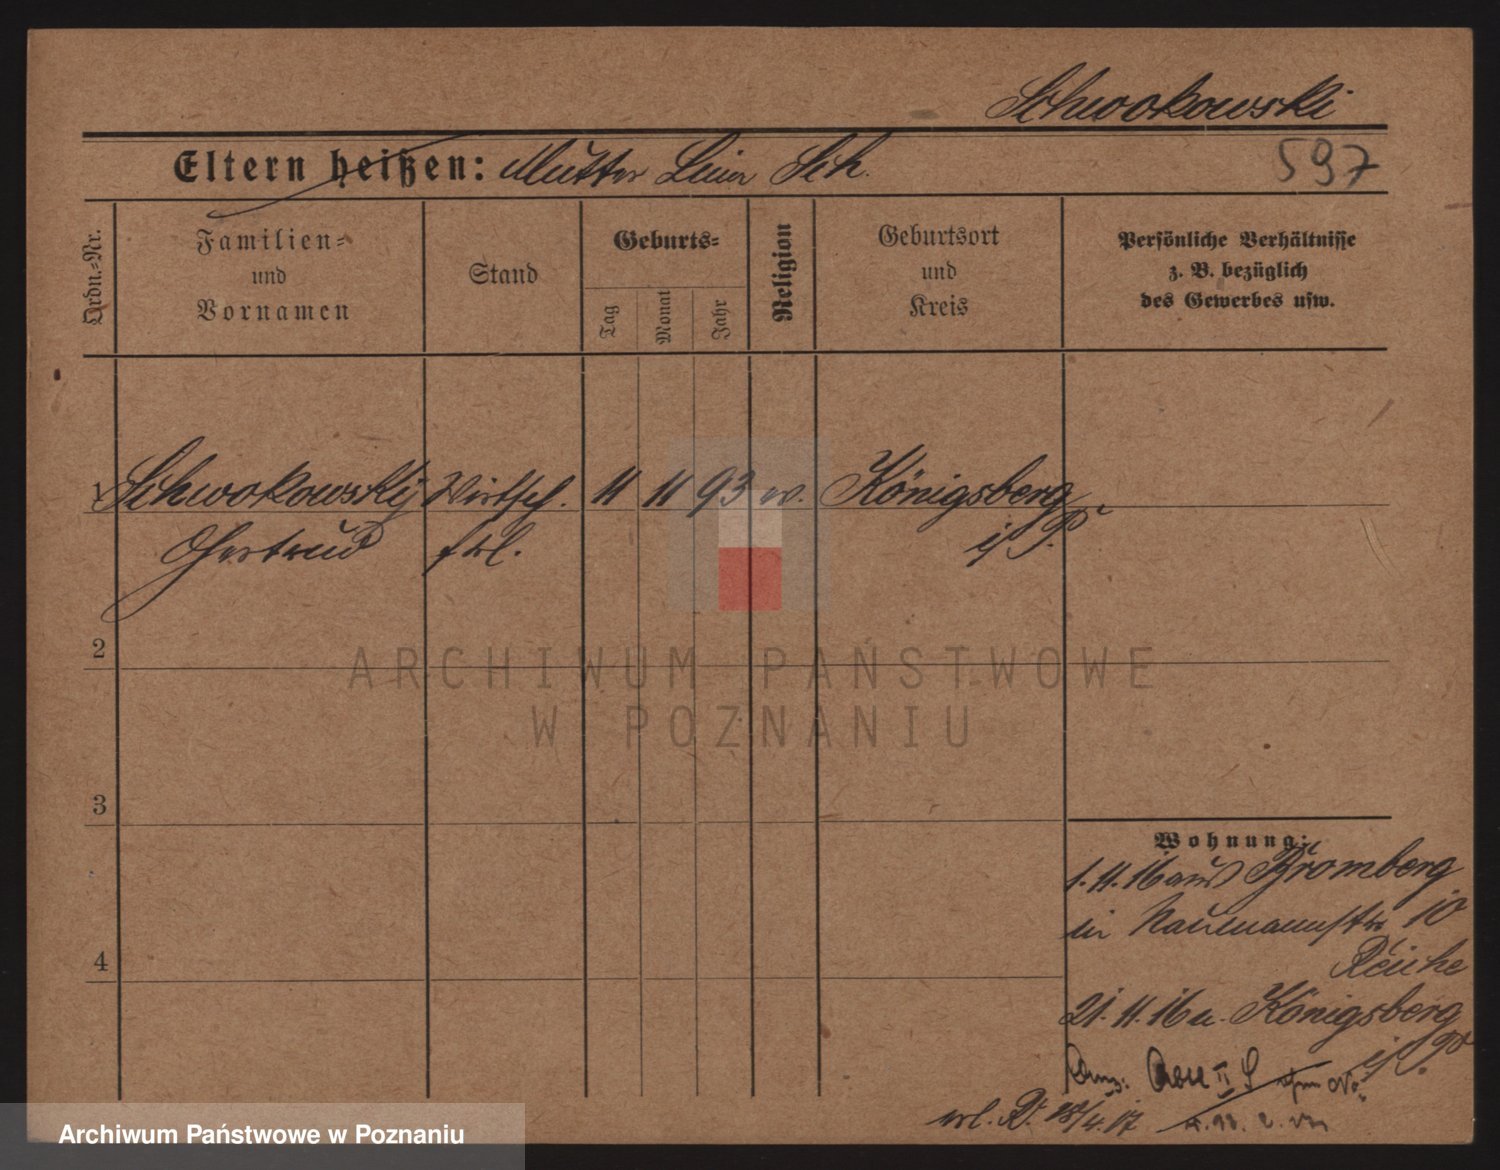 Schwokowski
Eltern heißen: Mutter Sch.
597
Ordn.-Nr.
Familien-
und
Vornamen
Stand
Geburts-
Tag
Monat
Jahr
Religion
Geburtsort
und
Kreis
Persönliche Verhältnisse
z. B. bezüglich
des Gewerbes usw.
1 Schwokowski Wirtsch. 11 11 93 ev. Königsberg
Gertrud frl. i/P.
2
ARCHIWUM PAŃSTWOWE
W POZNANIU
3
Wohnung:
1.11.16 aus Bromberg
in Naumannstr 10
Reiche
4
21.11.16 n. Königsberg
i/P.
28/4.17
Archiwum Państwowe w Poznaniu